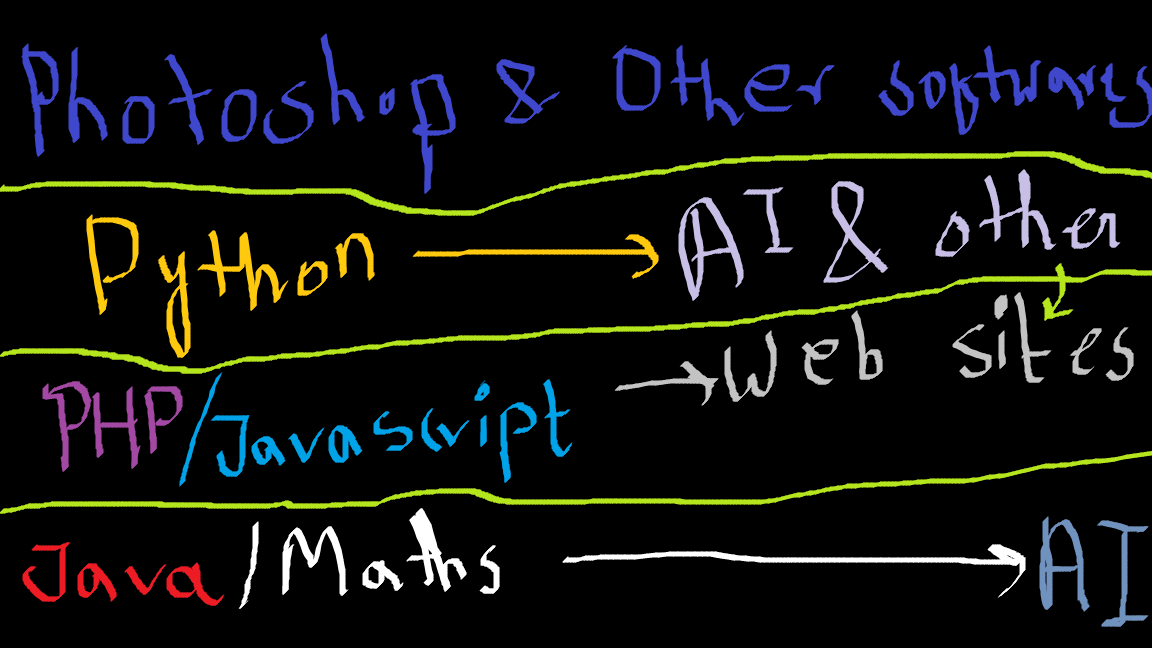 Photoshop & Other softwares
Python → AI & other
PHP/Javascript → Web sites
Java/Maths → AI